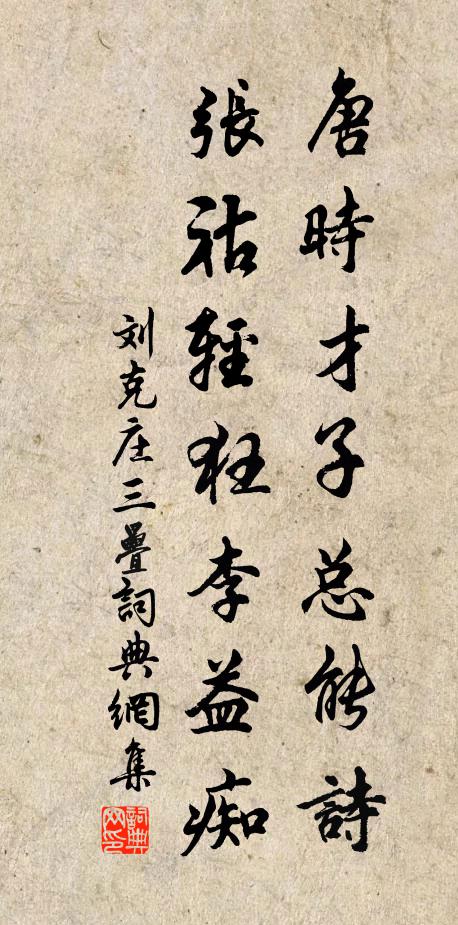 唐時才子总能詩
張祜輕狂李益痴
刘克庄三疊詞典網集
詞典网印